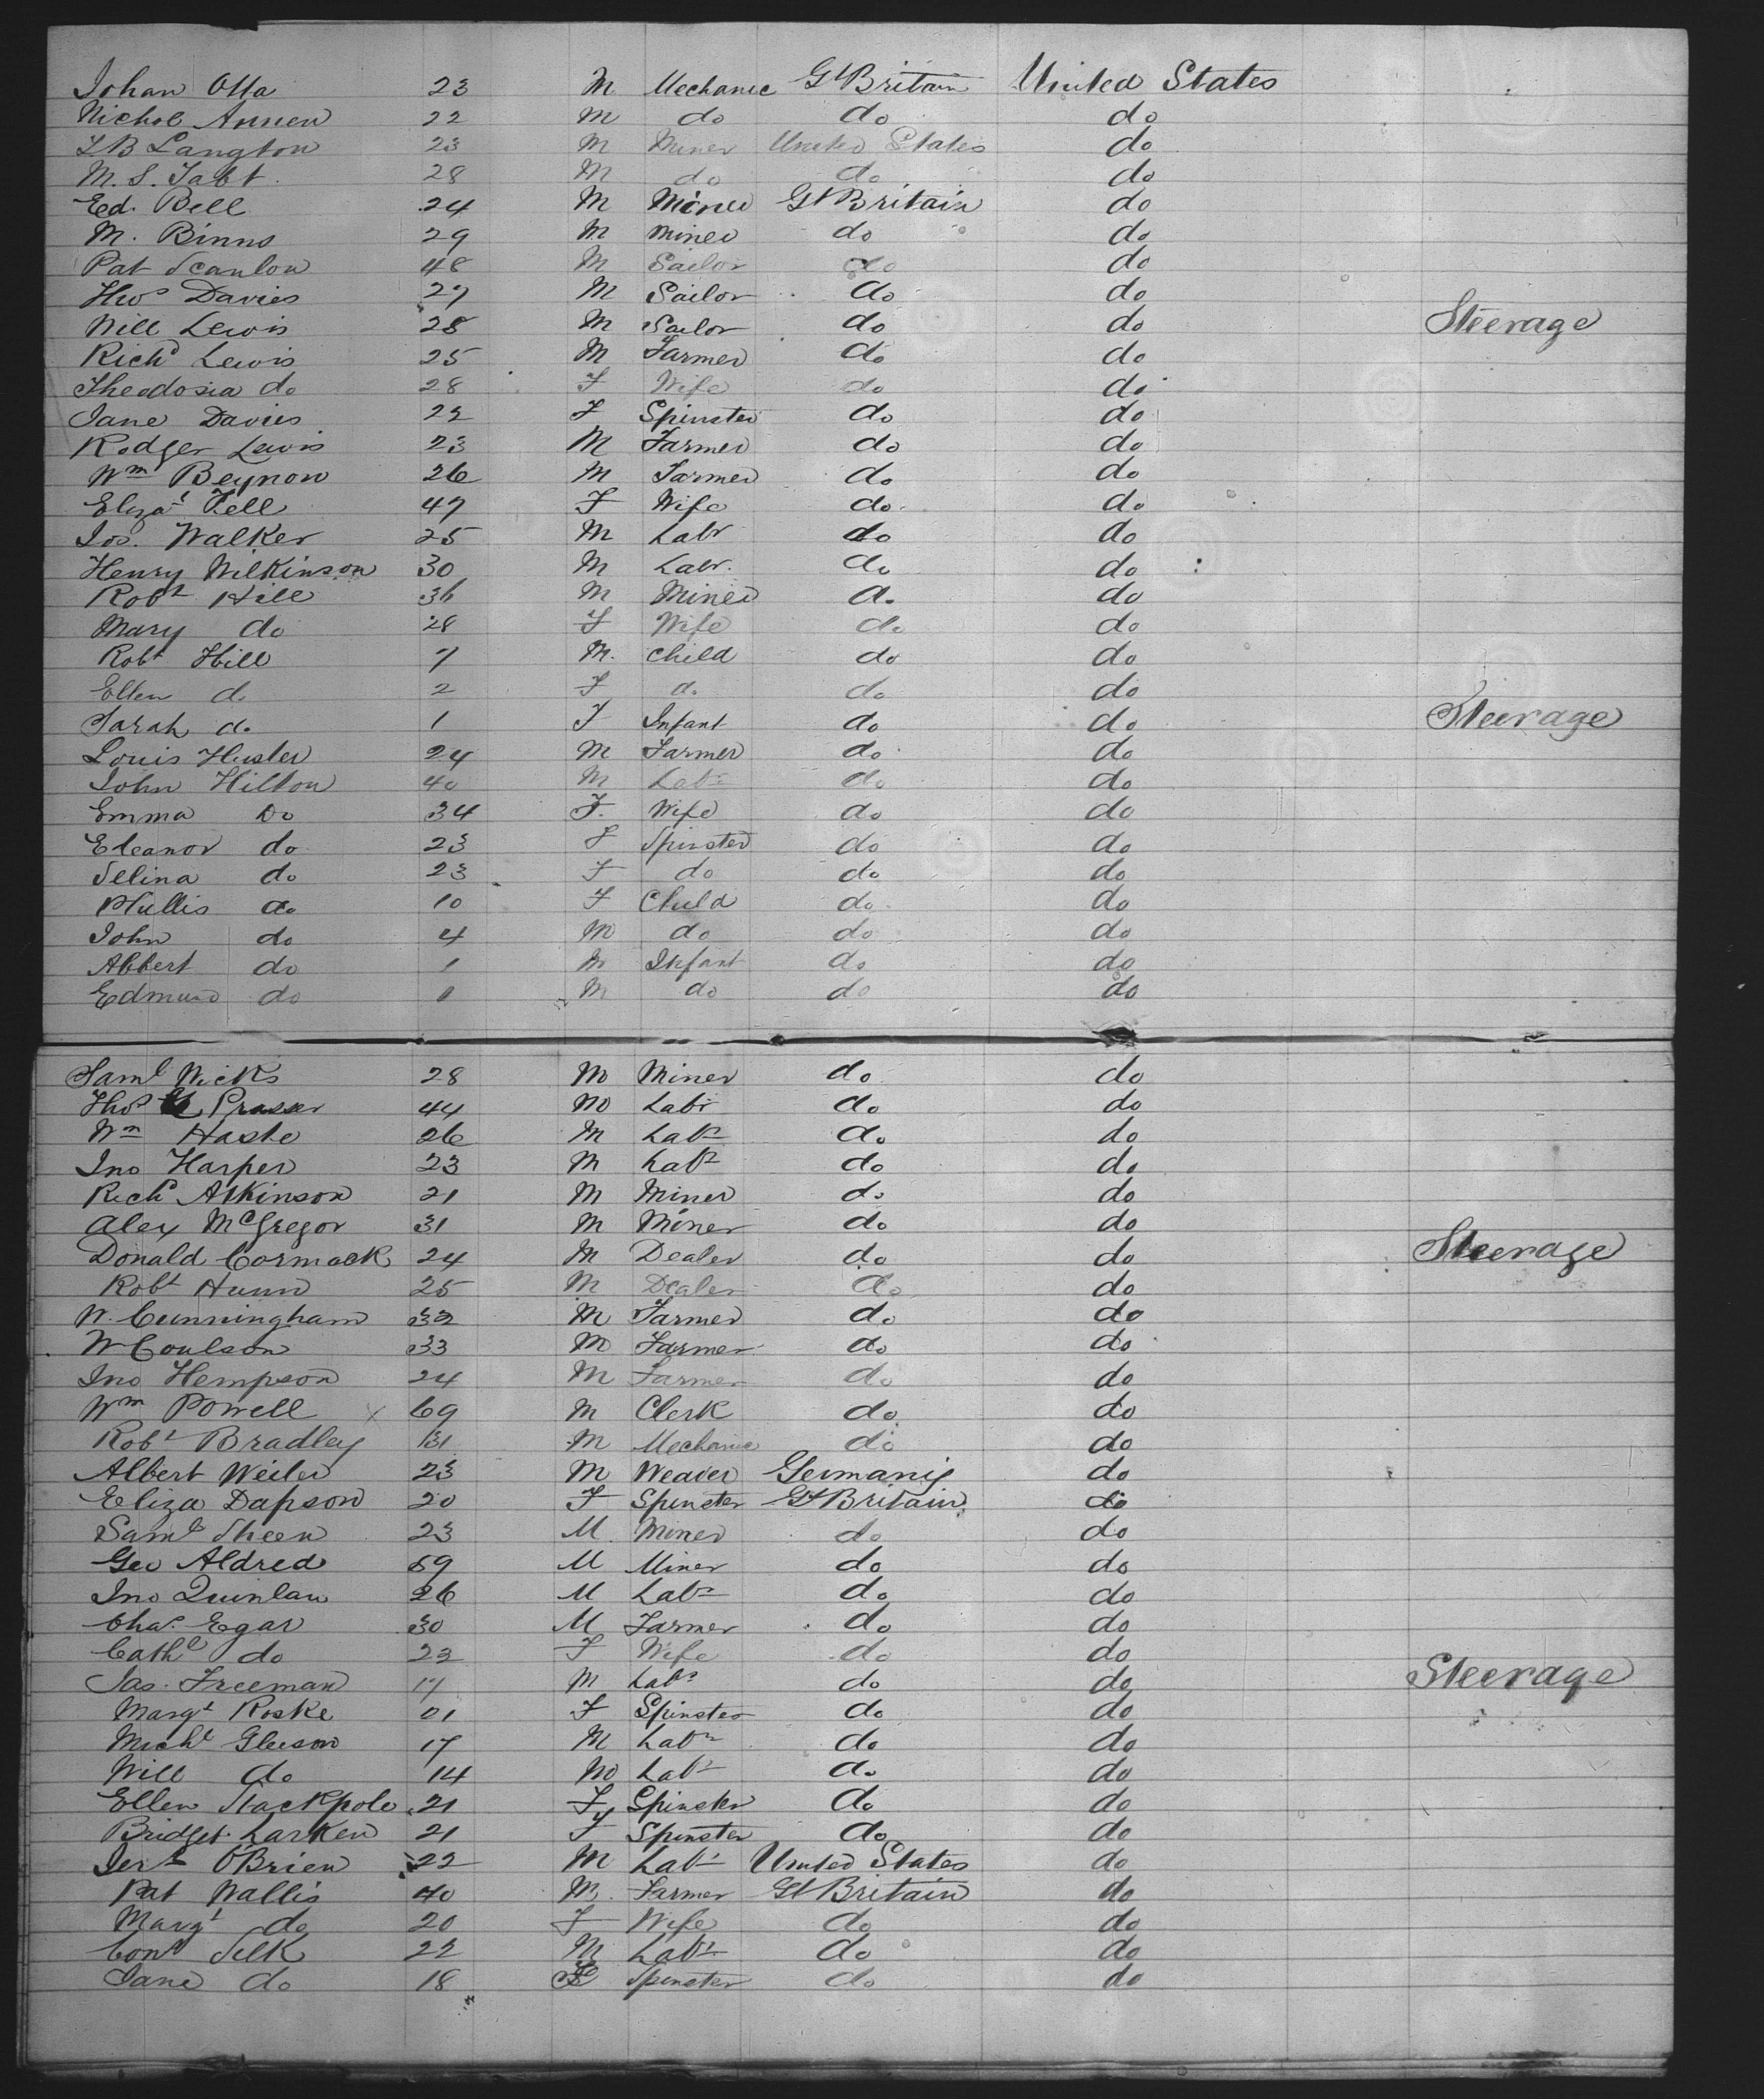 Johan Otta 23 M Mechanic Gt Britain United States
Nichol Annen 22 M do do do
T B Langton 23 M Miner United States do
M. S. Tabt 28 M do do do
Ed. Bell 24 M Miner Gt Britain do
M. Binns 29 M miner do do
Pat Scanlon 48 M Sailor do do
Thos Davies 27 M Sailor do do
Will Lewis 28 M Sailor do do Steerage
Richd Lewis 25 M Farmer do do
Theodosia do 28 F Wife do do
Jane Davies 22 F Spinster do do
Rodger Lewis 23 M Farmer do do
Wm Beynon 26 M Farmer do do
Elizat Fell 47 F Wife do do
Jos. Walker 25 M Labr do do
Henry Wilkinson 30 M Labr. do do
Robt Hill 36 M Miner do do
Mary do 28 F Wife do do
Robt Hill 7 M. child do do
Ellen do 2 F do do do
Sarah do 1 F Infant do do Steerage
Louis Huster 24 M Farmer do do
John Hilton 40 M Labr do do
Emma Do 34 F. Wife do do
Eleanor do 23 F Spinster do do
Selina do 23 F do do do
Phillis do 10 F Child do do
John do 4 M do do do
Albert do 1 M Infant do do
Edmund do 0 M do do do
Saml Wicks 28 M Miner do do
Thos Prasser 44 M Labr do do
Wm Haste 26 M Labr do do
Jno Harper 23 M Labr do do
Richd Atkinson 21 M Miner do do
Alex McGregor 31 M Miner do do
Donald Cormack 24 M Dealer do do Steerage
Robt Hunn 25 M Dealer do do
W. Cunningham 32 M Farmer do do
W Coulson 33 M Farmer do do
Jno Hempson 24 M Farmer do do
Wm Powell x 69 M Clerk do do
Robt Bradley 31 M Mechanic do do
Albert Weiler 23 M Weaver Germany do
Eliza Dapson 20 F Spinster Gt Britain do
Saml Sheen 23 M Miner do do
Geo Aldred 59 M Miner do do
Jno Quinlan 26 M Labr do do
Chas. Egar 30 M Farmer do do
Cathe do 23 F Wife do do
Jas. Freeman 17 M Labr do do Steerage
Margt Roske 21 F Spinster do do
Michl Gleeson 17 M Labr do do
Will do 14 M Labr do do
Ellen Stackpole 21 F Spinster do do
Bridget Larken 21 F Spinster do do
Jerh O'Brien 22 M Labr United States do
Pat Wallis 40 M. Farmer Gt Britain do
Margt do 20 F Wife do do
Conl Silk 22 M Labr do do
Jane do 18 F Spinster do do